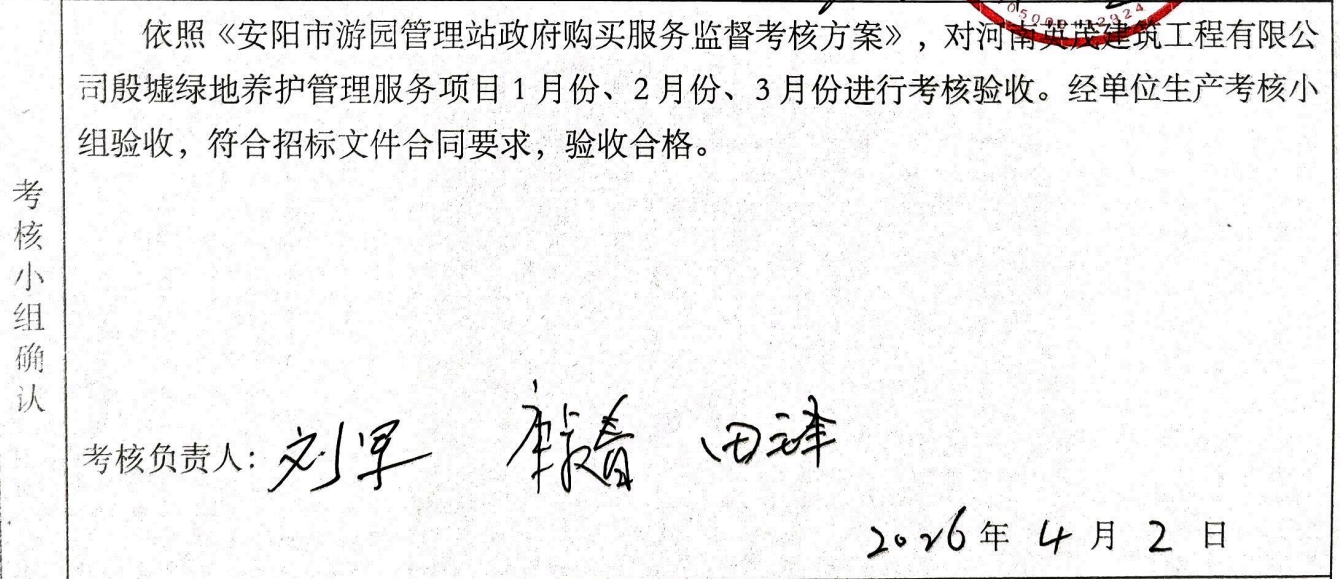 依照《安阳市游园管理站政府购买服务监督考核方案》，对河南英茂建筑工程有限公
司殷墟绿地养护管理服务项目1月份、2月份、3月份进行考核验收。经单位生产考核小
组验收，符合招标文件合同要求，验收合格。
考核小组确认
考核负责人：刘军
2026年4月2日